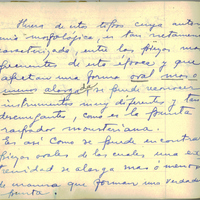 Fuera de esto tipos cuya auton
mía morfológica, es tan netamente
caracterizado, entre las piezas mas
frecuentes de esta época y que
afectan una forma oral mas o
menos alargada se puede reconocer
instrumentos muy diferentes y tan
descuidantes, como es la punta
raspador mousteriana.
Es así como se puede encontrar
piezas orales de las cuales una ex
tremidad se alarga mas o menos
de manera que forman una verdadera
punta.